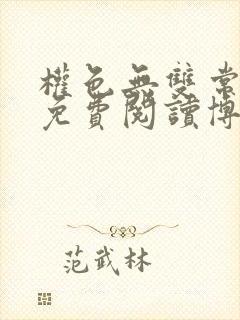 權色無雙常
免費閱讀博
范武林